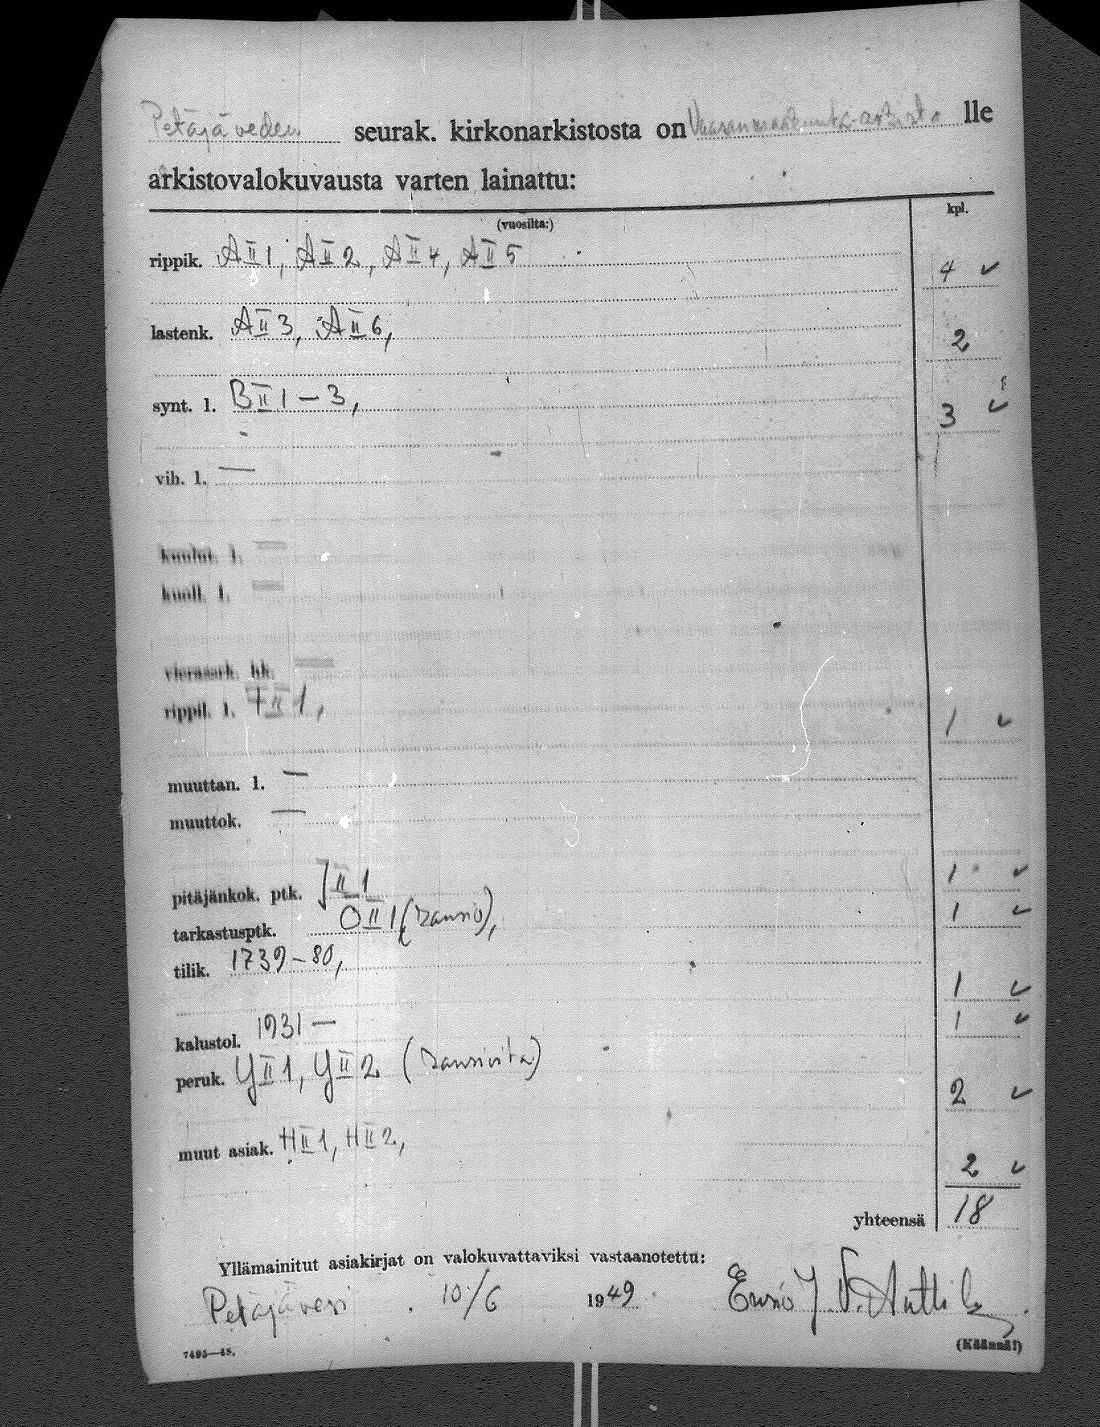 Petäjäveden seurak. kirkonarkistosta on Vaasan maakunta-arkisto lle
arkistovalokuvausta varten lainattu:
(vuosilta:) kpl.
rippik. A II 1, A II 2, A II 4, A II 5 4 ✓
lastenk. A II 3, A II 6, 2
synt. l. B II 1 – 3, 3 ✓
vih. l. —
kuulut. l. —
kuoll. l. —
vierassrk. hk. —
rippil. l. F II 1, 1 ✓
muuttan. l. —
muuttok. —
pitäjänkok. ptk. J II 1 1 ✓
tarkastusptk. O II 1 1 ✓
tilik. 1739–80, 1 ✓
kalustol. 1931 — 1 ✓
peruk. Y II 1, Y II 2 2 ✓
muut asiak. H II 1, H II 2, 2 ✓
yhteensä 18
Yllämainitut asiakirjat on valokuvattaviksi vastaanotettu:
Petäjävesi . 10/6 1949 Ensio J. V. Anttila
7495—48. (Käännä!)